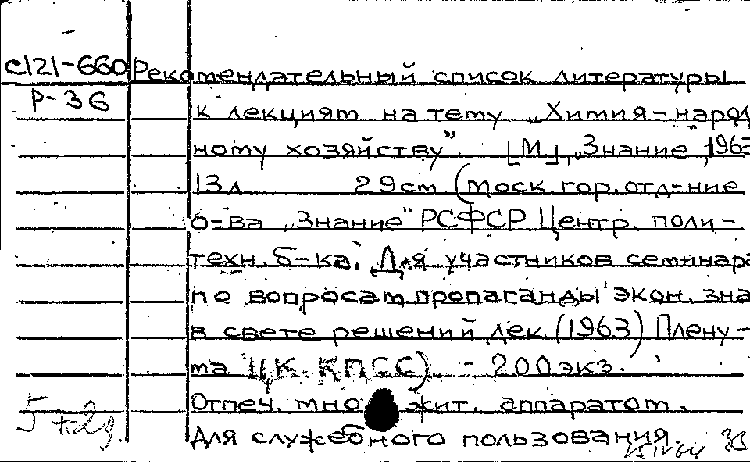 С121-660 Рекомендательный список литературы
Р-36 к лекциям на тему „Химия – народ
ному хозяйству". [М], „Знание", 1963
13л 29см (Моск. гор. отд-ние
о-ва „Знание" РСФСР. Центр. поли-
техн. б-ка. Для участников семинара
по вопросам пропаганды экон. зна
в свете решений дек. (1963) Плену-
ма ЦК КПСС). – 200 экз.
Отпеч. мно жит. аппаратом.
Для служебного пользования.